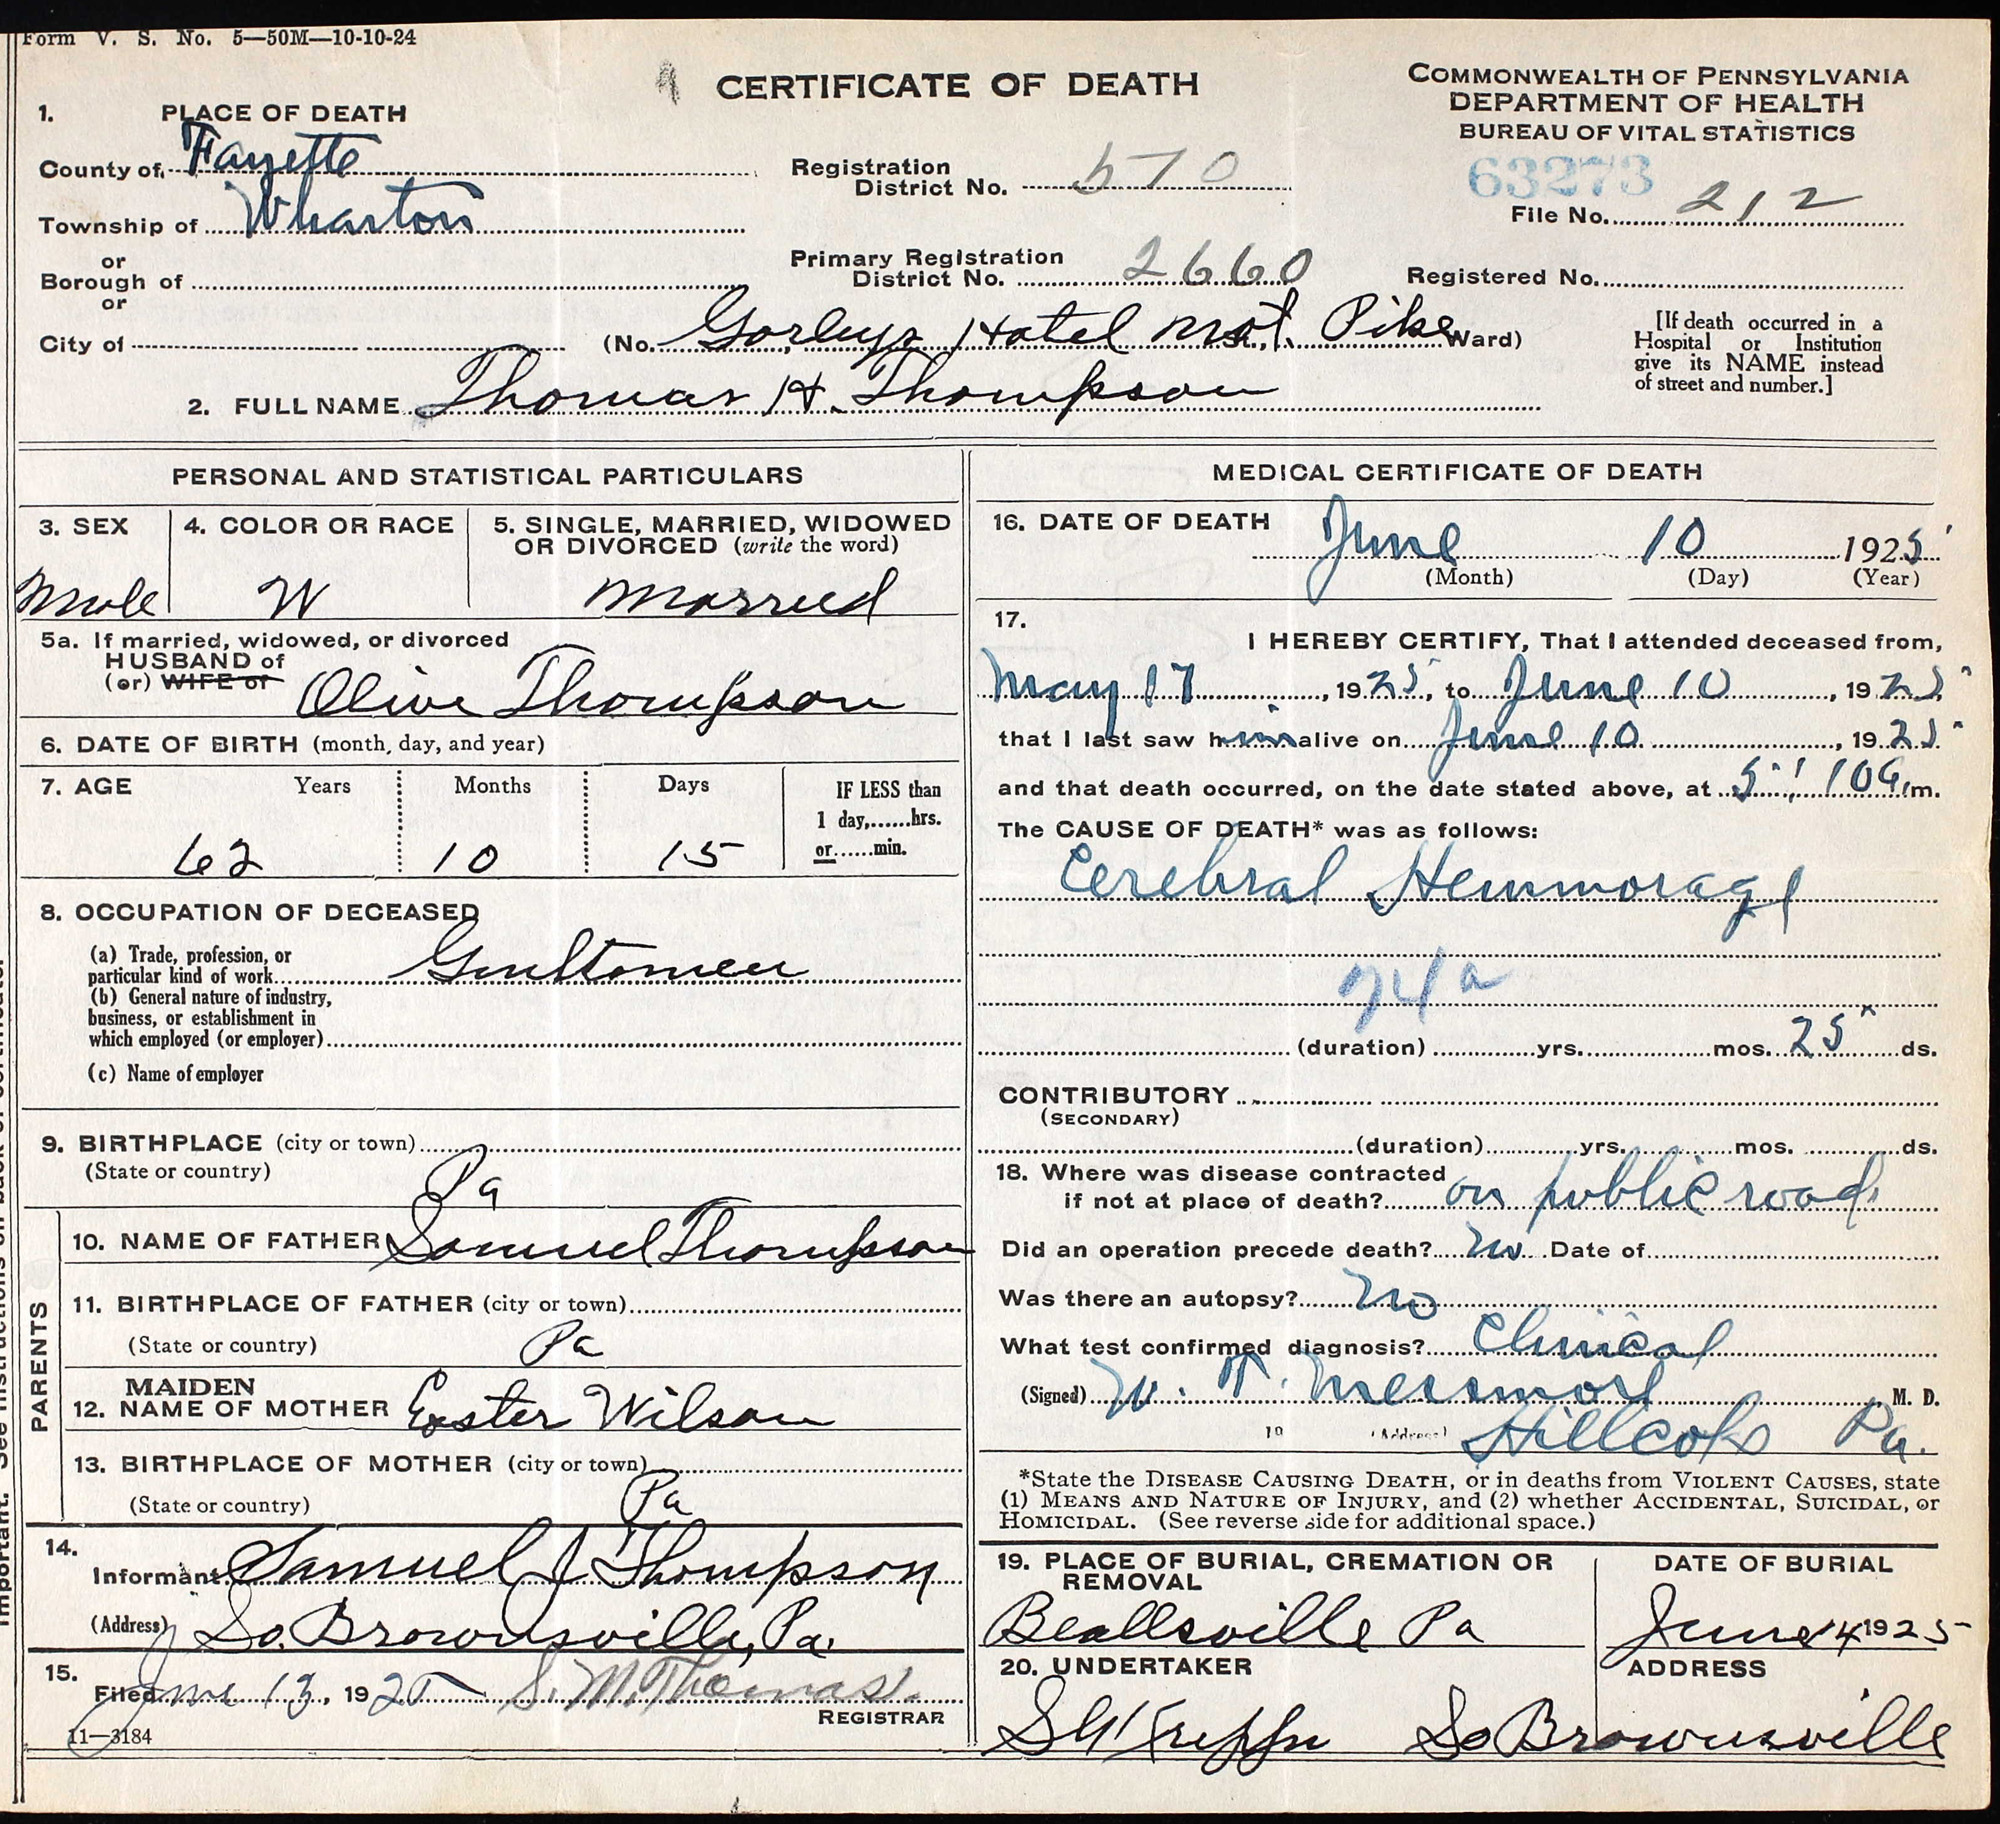 Form V. S. No. 5—50M—10-10-24
CERTIFICATE OF DEATH
COMMONWEALTH OF PENNSYLVANIA
DEPARTMENT OF HEALTH
BUREAU OF VITAL STATISTICS
63273
File No. 212
Registered No.
1. PLACE OF DEATH
County of Fayette
Township of Wharton
or
Borough of
or
City of
Registration
District No. 570
Primary Registration
District No. 2660
(No. Gorleys Hotel Nat. Pike St., Ward)
[If death occurred in a
Hospital or Institution
give its NAME instead
of street and number.]
2. FULL NAME Thomas H. Thompson
PERSONAL AND STATISTICAL PARTICULARS
3. SEX
Male
4. COLOR OR RACE
W
5. SINGLE, MARRIED, WIDOWED
OR DIVORCED (write the word)
Married
5a. If married, widowed, or divorced
HUSBAND of
(or) WIFE of
Olive Thompson
6. DATE OF BIRTH (month, day, and year)
7. AGE Years Months Days
62 10 15
IF LESS than
1 day,......hrs.
or......min.
8. OCCUPATION OF DECEASED
(a) Trade, profession, or
particular kind of work
(b) General nature of industry,
business, or establishment in
which employed (or employer)
(c) Name of employer
9. BIRTHPLACE (city or town)
(State or country) Pa
PARENTS
10. NAME OF FATHER Samuel Thompson
11. BIRTHPLACE OF FATHER (city or town)
(State or country) Pa
MAIDEN
12. NAME OF MOTHER Ester Wilson
13. BIRTHPLACE OF MOTHER (city or town)
(State or country) Pa
14.
Informant Samuel J Thompson
(Address) So. Brownsville, Pa.
15.
Filed June 13, 1925 S. M. Thomas
REGISTRAR
11—3184
MEDICAL CERTIFICATE OF DEATH
16. DATE OF DEATH
June 10 1925
(Month) (Day) (Year)
17.
I HEREBY CERTIFY, That I attended deceased from,
May 17, 1925, to June 10, 1925
that I last saw him alive on June 10, 1925
and that death occurred, on the date stated above, at 5:10 a.m.
The CAUSE OF DEATH* was as follows:
Cerebral Hemmorage
74a
(duration) yrs. mos. 25 ds.
CONTRIBUTORY
(SECONDARY)
(duration) yrs. mos. ds.
18. Where was disease contracted
if not at place of death? on public road
Did an operation precede death? No Date of
Was there an autopsy? No
What test confirmed diagnosis? Clinical
(Signed) M. D.
19 (Address) Pa.
*State the DISEASE CAUSING DEATH, or in deaths from VIOLENT CAUSES, state
(1) MEANS AND NATURE OF INJURY, and (2) whether ACCIDENTAL, SUICIDAL, or
HOMICIDAL. (See reverse side for additional space.)
19. PLACE OF BURIAL, CREMATION OR
REMOVAL
Beallsville Pa
DATE OF BURIAL
June 14 1925
20. UNDERTAKER
ADDRESS
So Brownsville